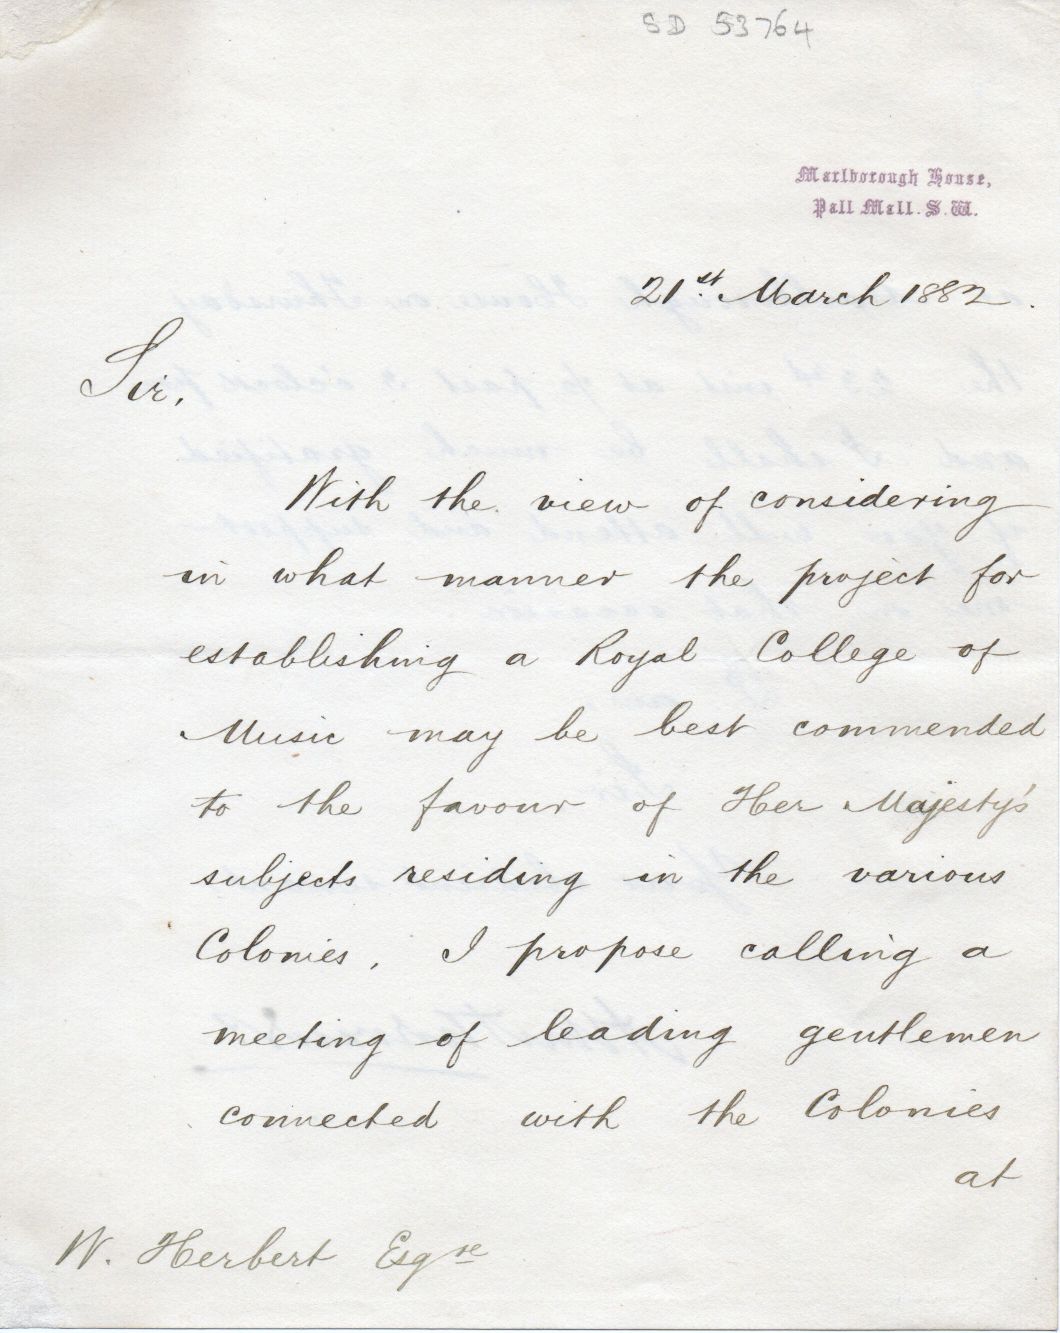 SD 53764
Marlborough House,
Pall Mall. S. W.
21st. March 1882.
Sir,
With the view of considering
in what manner the project for
establishing a Royal College of
Music may be best commended
to the favour of Her Majesty's
subjects residing in the various
Colonies, I propose calling a
meeting of leading gentlemen
connected with the Colonies
at
W. Herbert Esqre